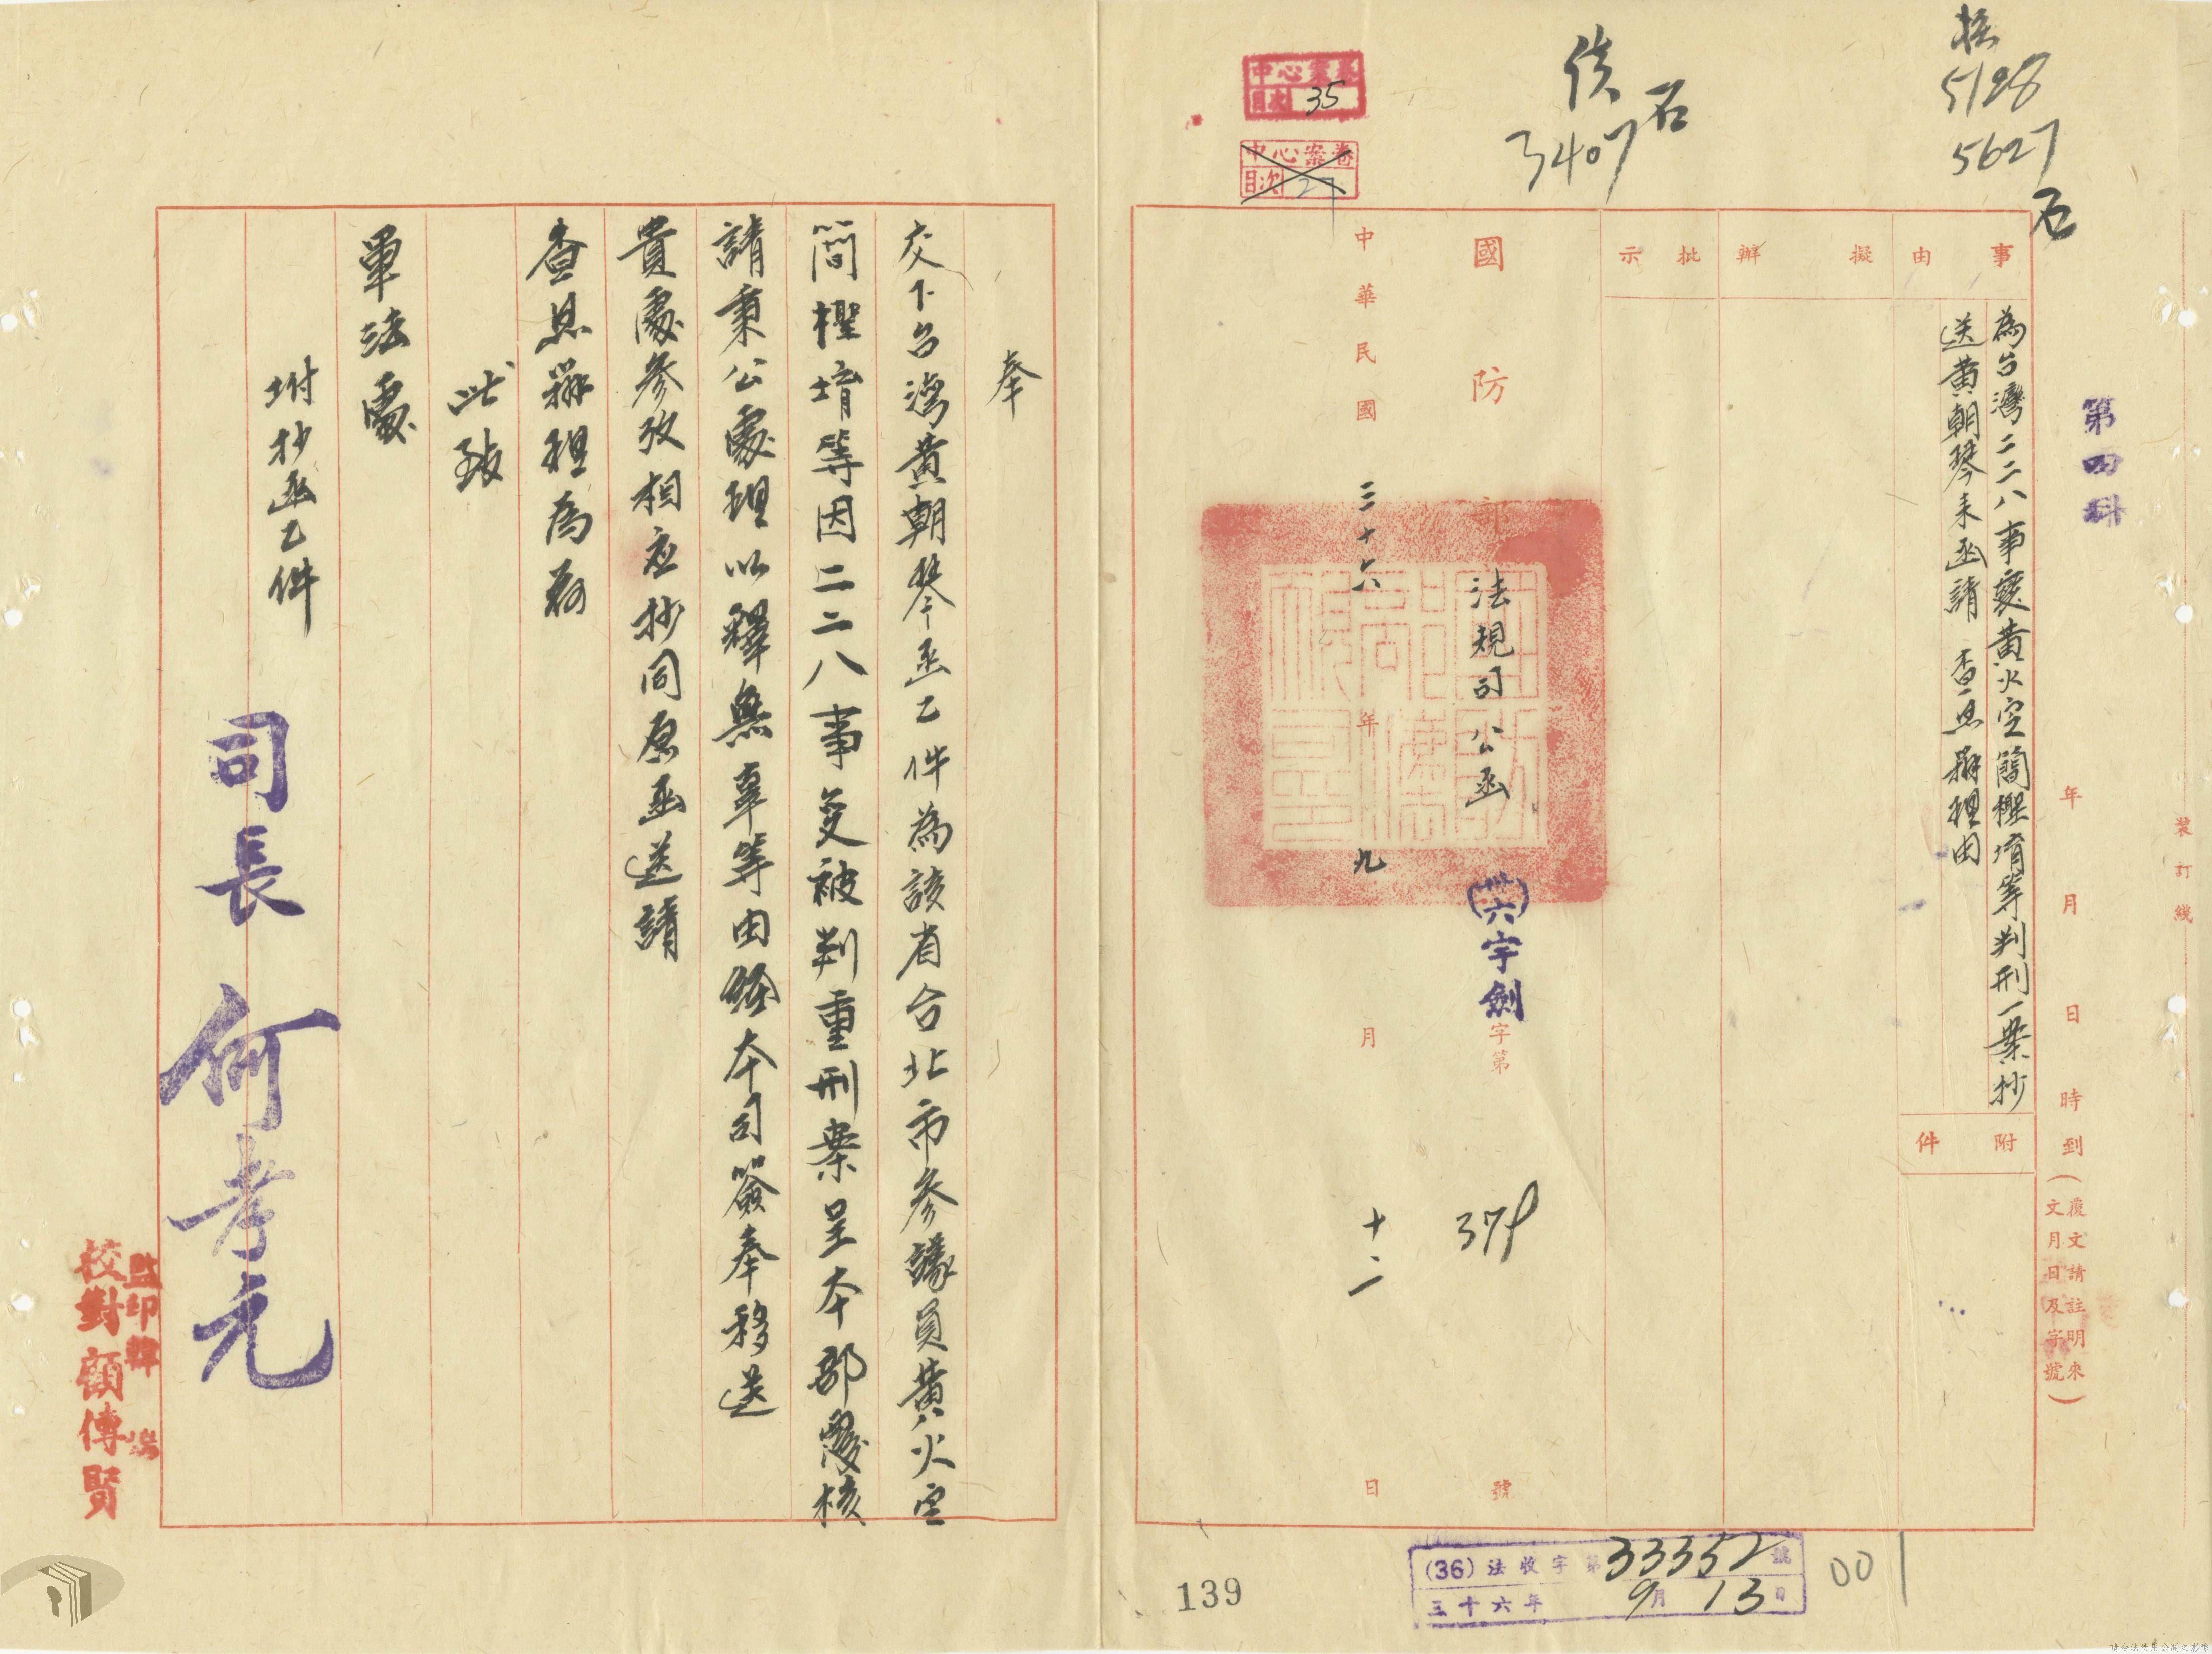 裝訂線
第四科
年 月 日 時到（覆文請註明來文月日及字號）
核
5198
5627
石
事由
為台灣二二八事變黃火定簡檉堉等判刑一案抄
送黃朝琴來函請 查照辦理由
附件
擬辦
批示
3407
石
國防部 法規司公函
(卅六)宇劍字第 379 號
中華民國三十六年九月十二日
中心案卷
目次 35
中心案卷
目次 27
奉
交下台灣黃朝琴函乙件為該省台北市參議員黃火定
簡檉堉等因二二八事變被判重刑案呈本部覆核
請秉公處理以釋無辜等由經本司簽奉移送
貴處參攷相應抄同原函送請
查照辦理為荷
此致
軍法處
坿抄函乙件
司長 何孝元
監印韓
校對顧傳賢
139
(36)法收字第33352號
三十六年9月13日
001